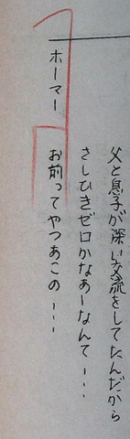 父と息子が深い交流をしてたんだから
さしひきゼロかなあーなんて・・・
ホーマー
お前ってやつあこの・・・